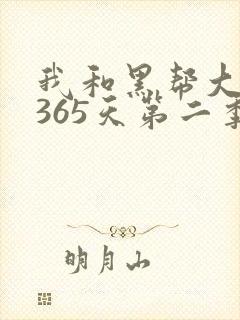 我和黑帮大
365天第二季
明月山